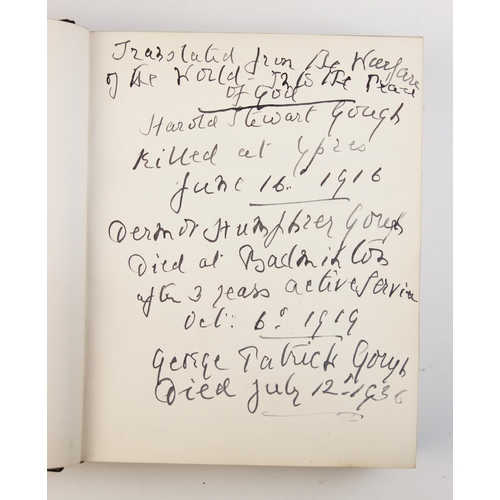 Translated from the Warfare
of the World - Into the Peace
of God
Harold Stewart Gough
Killed at Ypres
June 16. 1916
Dermot Humphrey Gough
Died at Badminton
after 3 years active Service
Oct: 6. 1919
George Patrick Gough
Died July 12th 1936